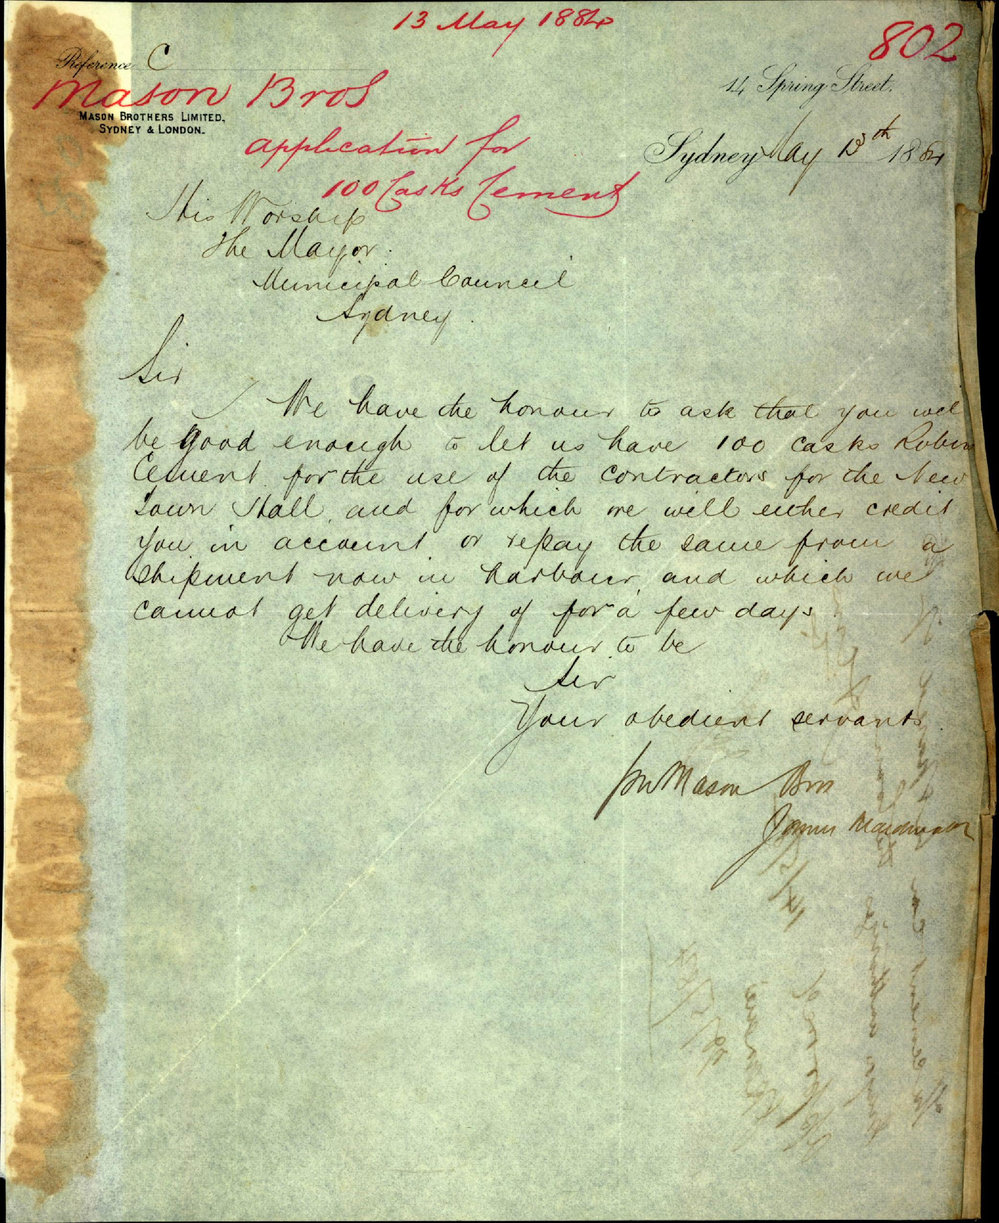 13 May 1884
802
Reference C
14 Spring Street.
Mason Bros
MASON BROTHERS LIMITED,
SYDNEY & LONDON.
application for
100 Casks Cement
Sydney May 13th 1884
His Worship
The Mayor
Municipal Council
Sydney.
Sir
We have the honour to ask that you will
be good enough to let us have 100 casks Robin
Cement for the use of the contractors for the New
Town Hall, and for which we will either credit
you in account or repay the same from a
shipment now in harbour, and which we
cannot get delivery of for a few days.
We have the honour to be
Sir
Your obedient servants
Mason Bros
James